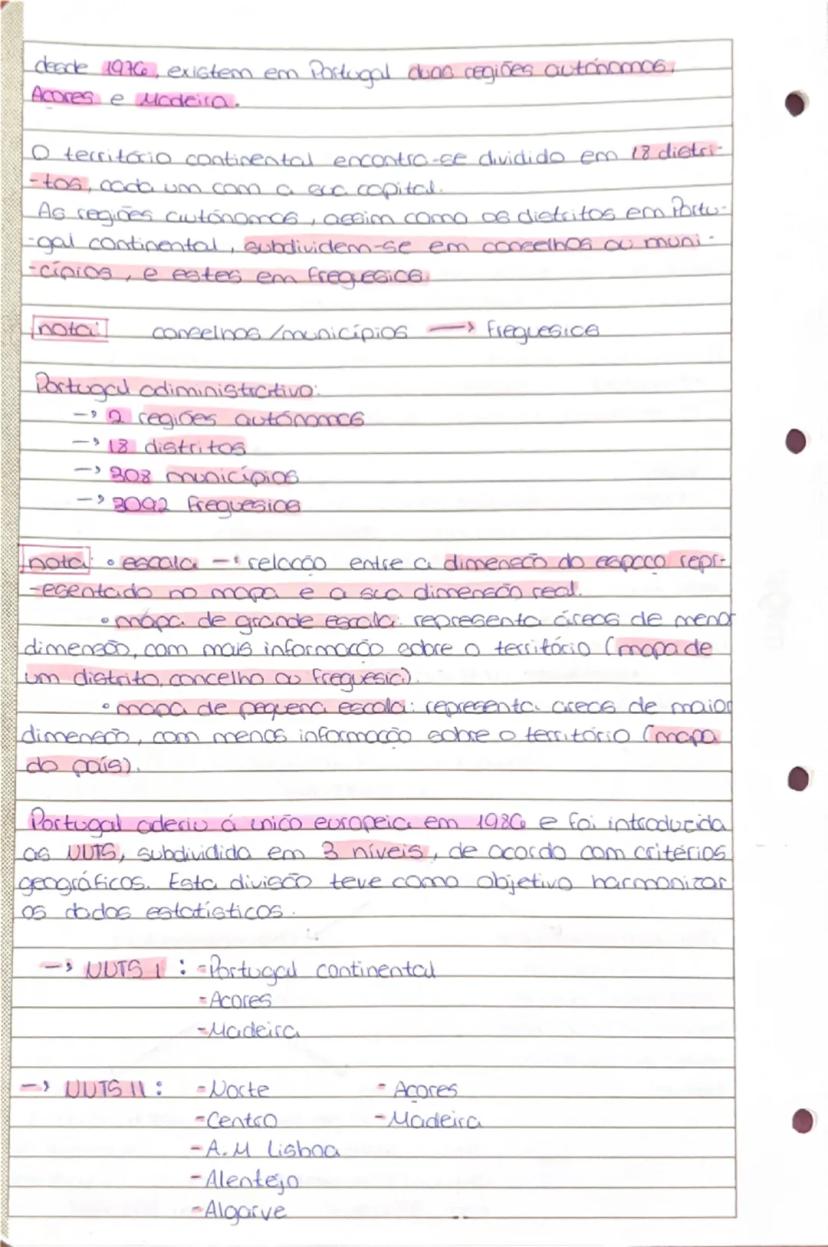 desde 1976, existem em Portugal duas regiões autónomas,
Açores e Madeira.
O território continental encontra-se dividido em 18 distri-
-tos, cada um com a sua capital.
As regiões autónomas, assim como os distritos em Portu-
-gal continental, subdividem-se em concelhos ou muni-
-cípios, e estes em freguesias.
nota: concelhos/municípios → freguesias
Portugal administrativo:
→ 2 regiões autónomas
→ 18 distritos
→ 308 municípios
→ 3092 freguesias
nota: • escala → relação entre a dimensão do espaço repr-
-esentado no mapa e a sua dimensão real.
• mapa de grande escala: representa áreas de menor
dimensão, com mais informação sobre o território (mapa de
um distrito, concelho ou freguesia).
• mapa de pequena escala: representa áreas de maior
dimensão, com menos informação sobre o território (mapa
do país).
Portugal aderiu á união europeia em 1986 e foi introduzida
as NUTS, subdividida em 3 níveis, de acordo com critérios
geográficos. Esta divisão teve como objetivo harmonizar
os dados estatísticos.
→ NUTS I : - Portugal continental
- Açores
- Madeira
→ NUTS II : - Norte - Açores
- Centro - Madeira
- A.M Lisboa
- Alentejo
- Algarve